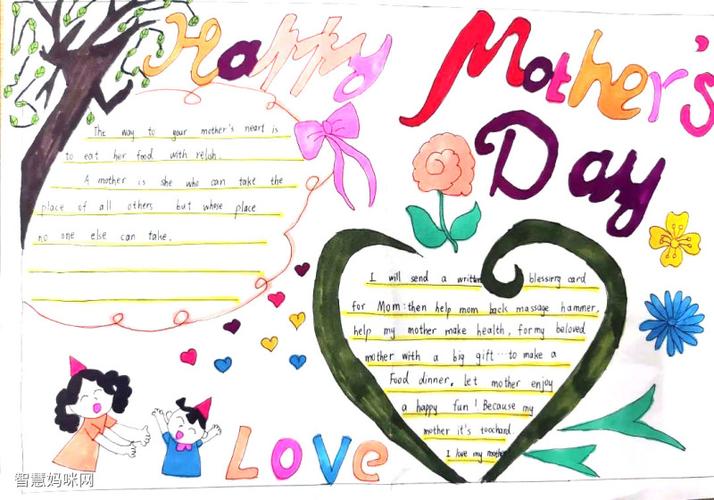 Happy Mother's
Day
The way to your mother's heart is
to eat her food with relish.
A mother is she who can take the
place of all others but whose place
no one else can take.
I will send a written blessing card
for Mom:then help mom back massage hammer,
help my mother make health, for my beloved
mother with a big gift...to make a
Food dinner, let mother enjoy
a happy fun! Because my
mother it's toochand.
I love my mother
LOVe
智慧妈咪网